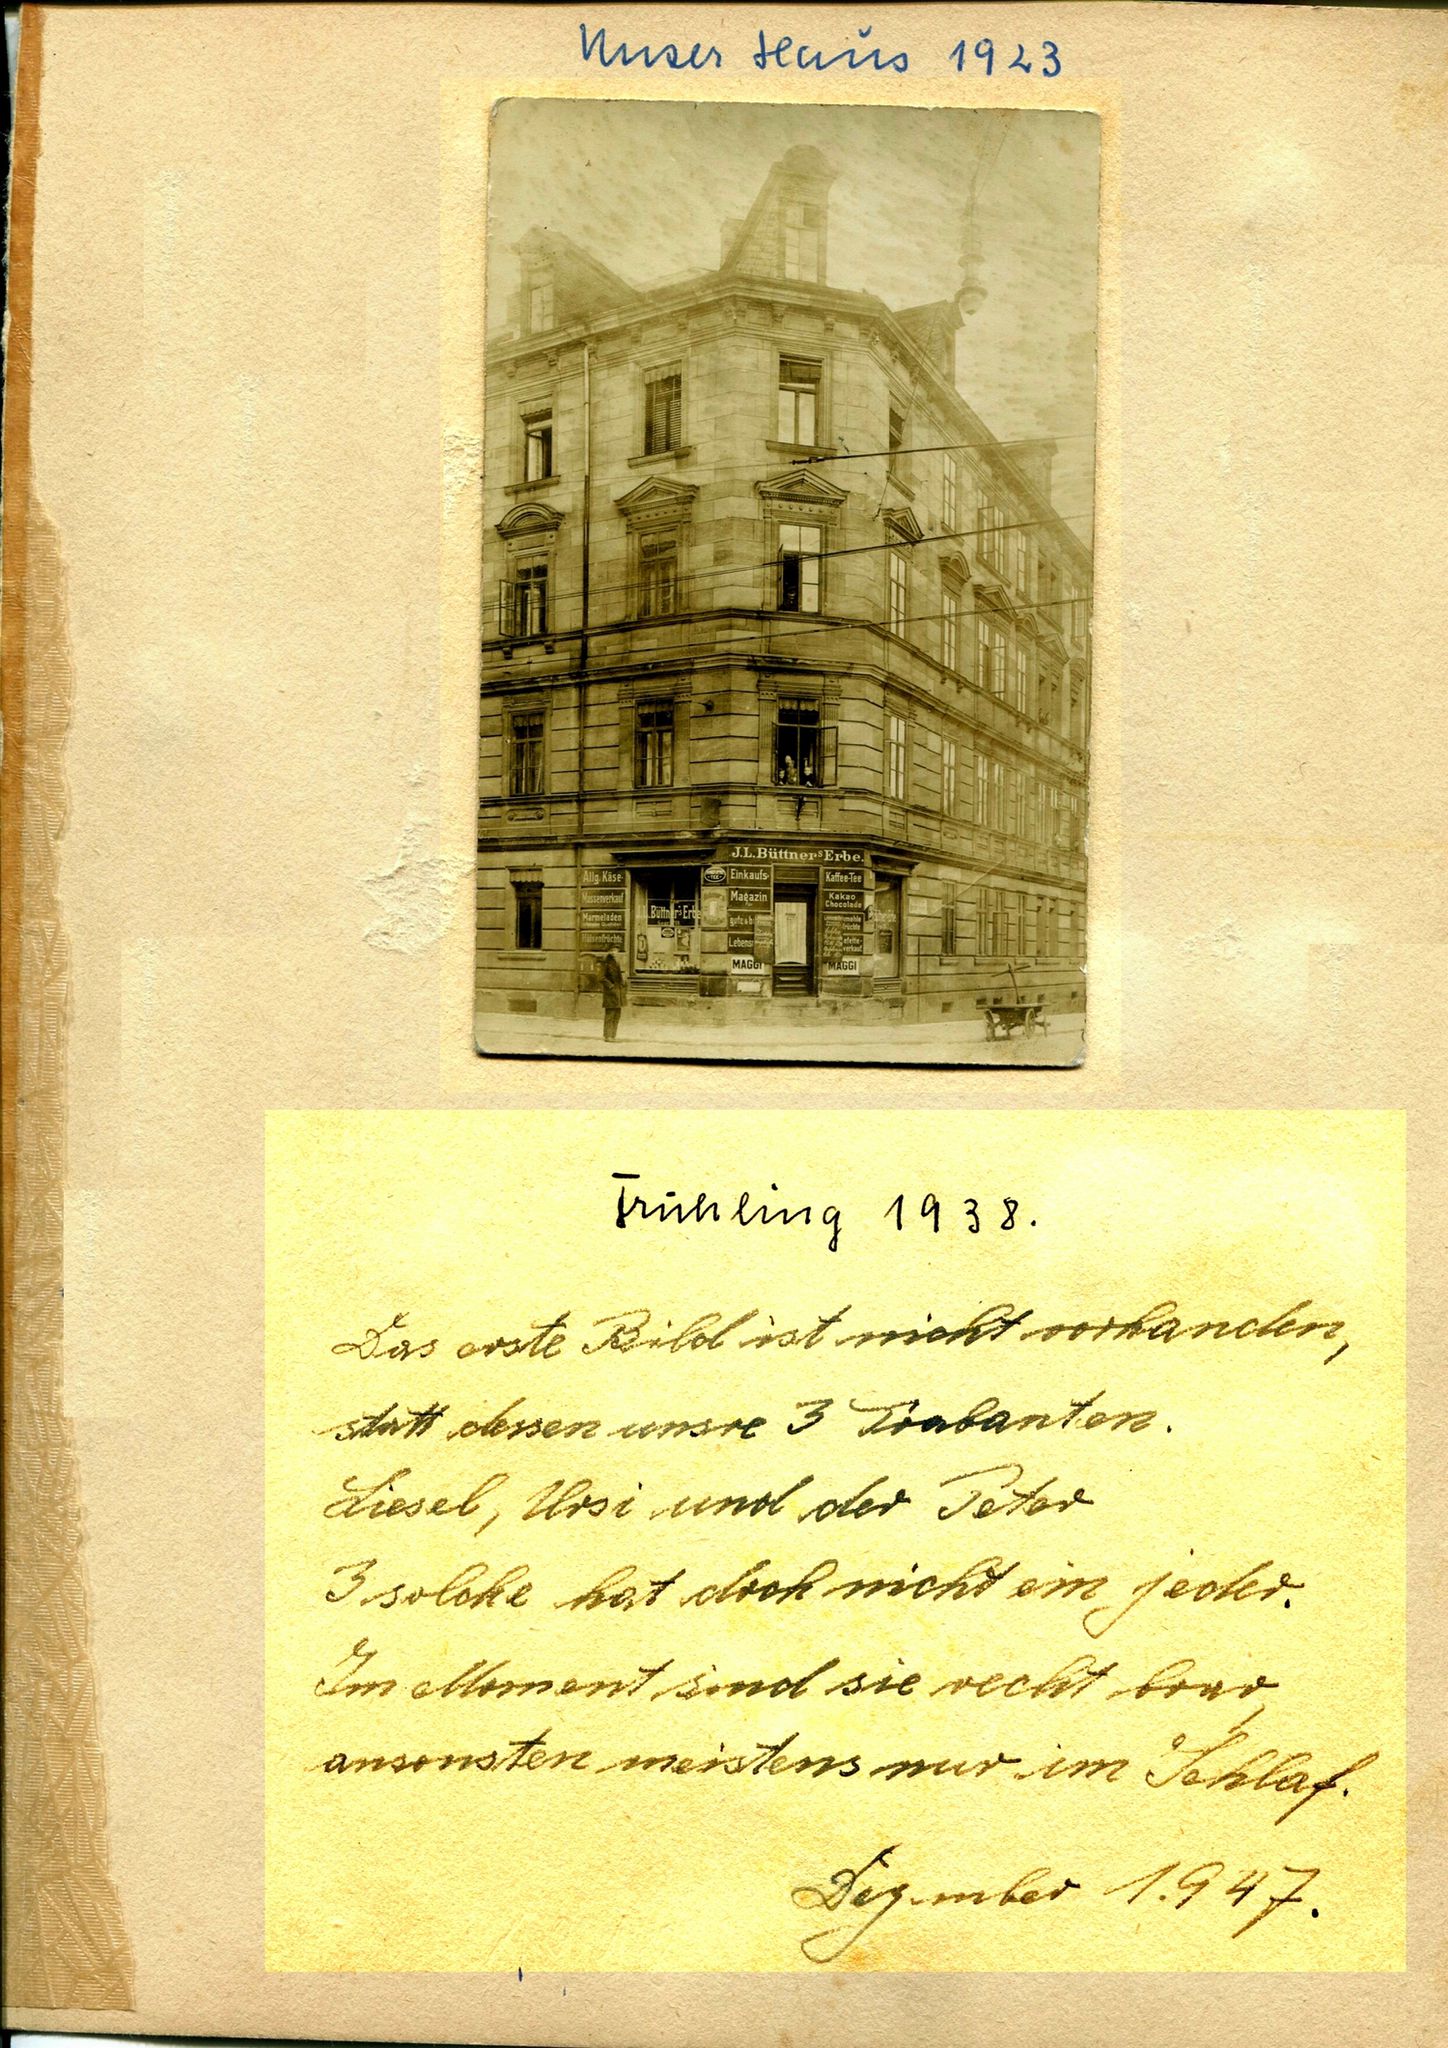 Unser Haus 1923
J. L. Büttner's Erbe.
Allg. Käse-
Massenverkauf
Marmeladen
Hülsenfrüchte
Büttner's Erbe
TEE
Einkaufs-
Magazin
gute &
Lebens
MAGGI
Kaffee-Tee
Kakao
Chocolade
verkauf
MAGGI
Frühling 1938.
Das erste Bild ist nicht vorhanden,
statt dessen unsre 3 Trabanten.
Liesel, Ursi und der Peter
3 solche hat doch nicht ein jeder.
Im Moment sind sie recht brav,
ansonsten meistens nur im Schlaf.
Dezember 1947.